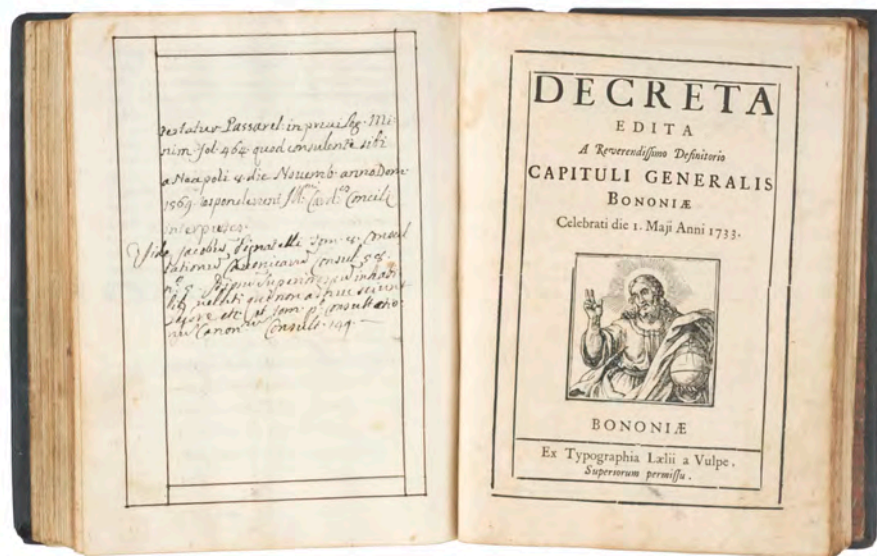 testatur Passarel: in privileg. Mi-
nim. fol. 464. quod consulente sibi
a Neapoli die Novemb. anno Dom.
1569 responderunt Card. Concilii
interpretes.
Vide Jacobus Pignatelli Tom. Consul
tationum Canonicarum Consul. 58.
n.º 5. Superiores
qui non adhuc sciunt
legere etc. et Tom. p.º Consultatio-
num Canon. Consult. 149.
DECRETA
EDITA
A Reverendissimo Definitorio
CAPITULI GENERALIS
BONONIÆ
Celebrati die 1. Maji Anni 1733.
BONONIÆ
Ex Typographia Lælii a Vulpe.
Superiorum permissu.